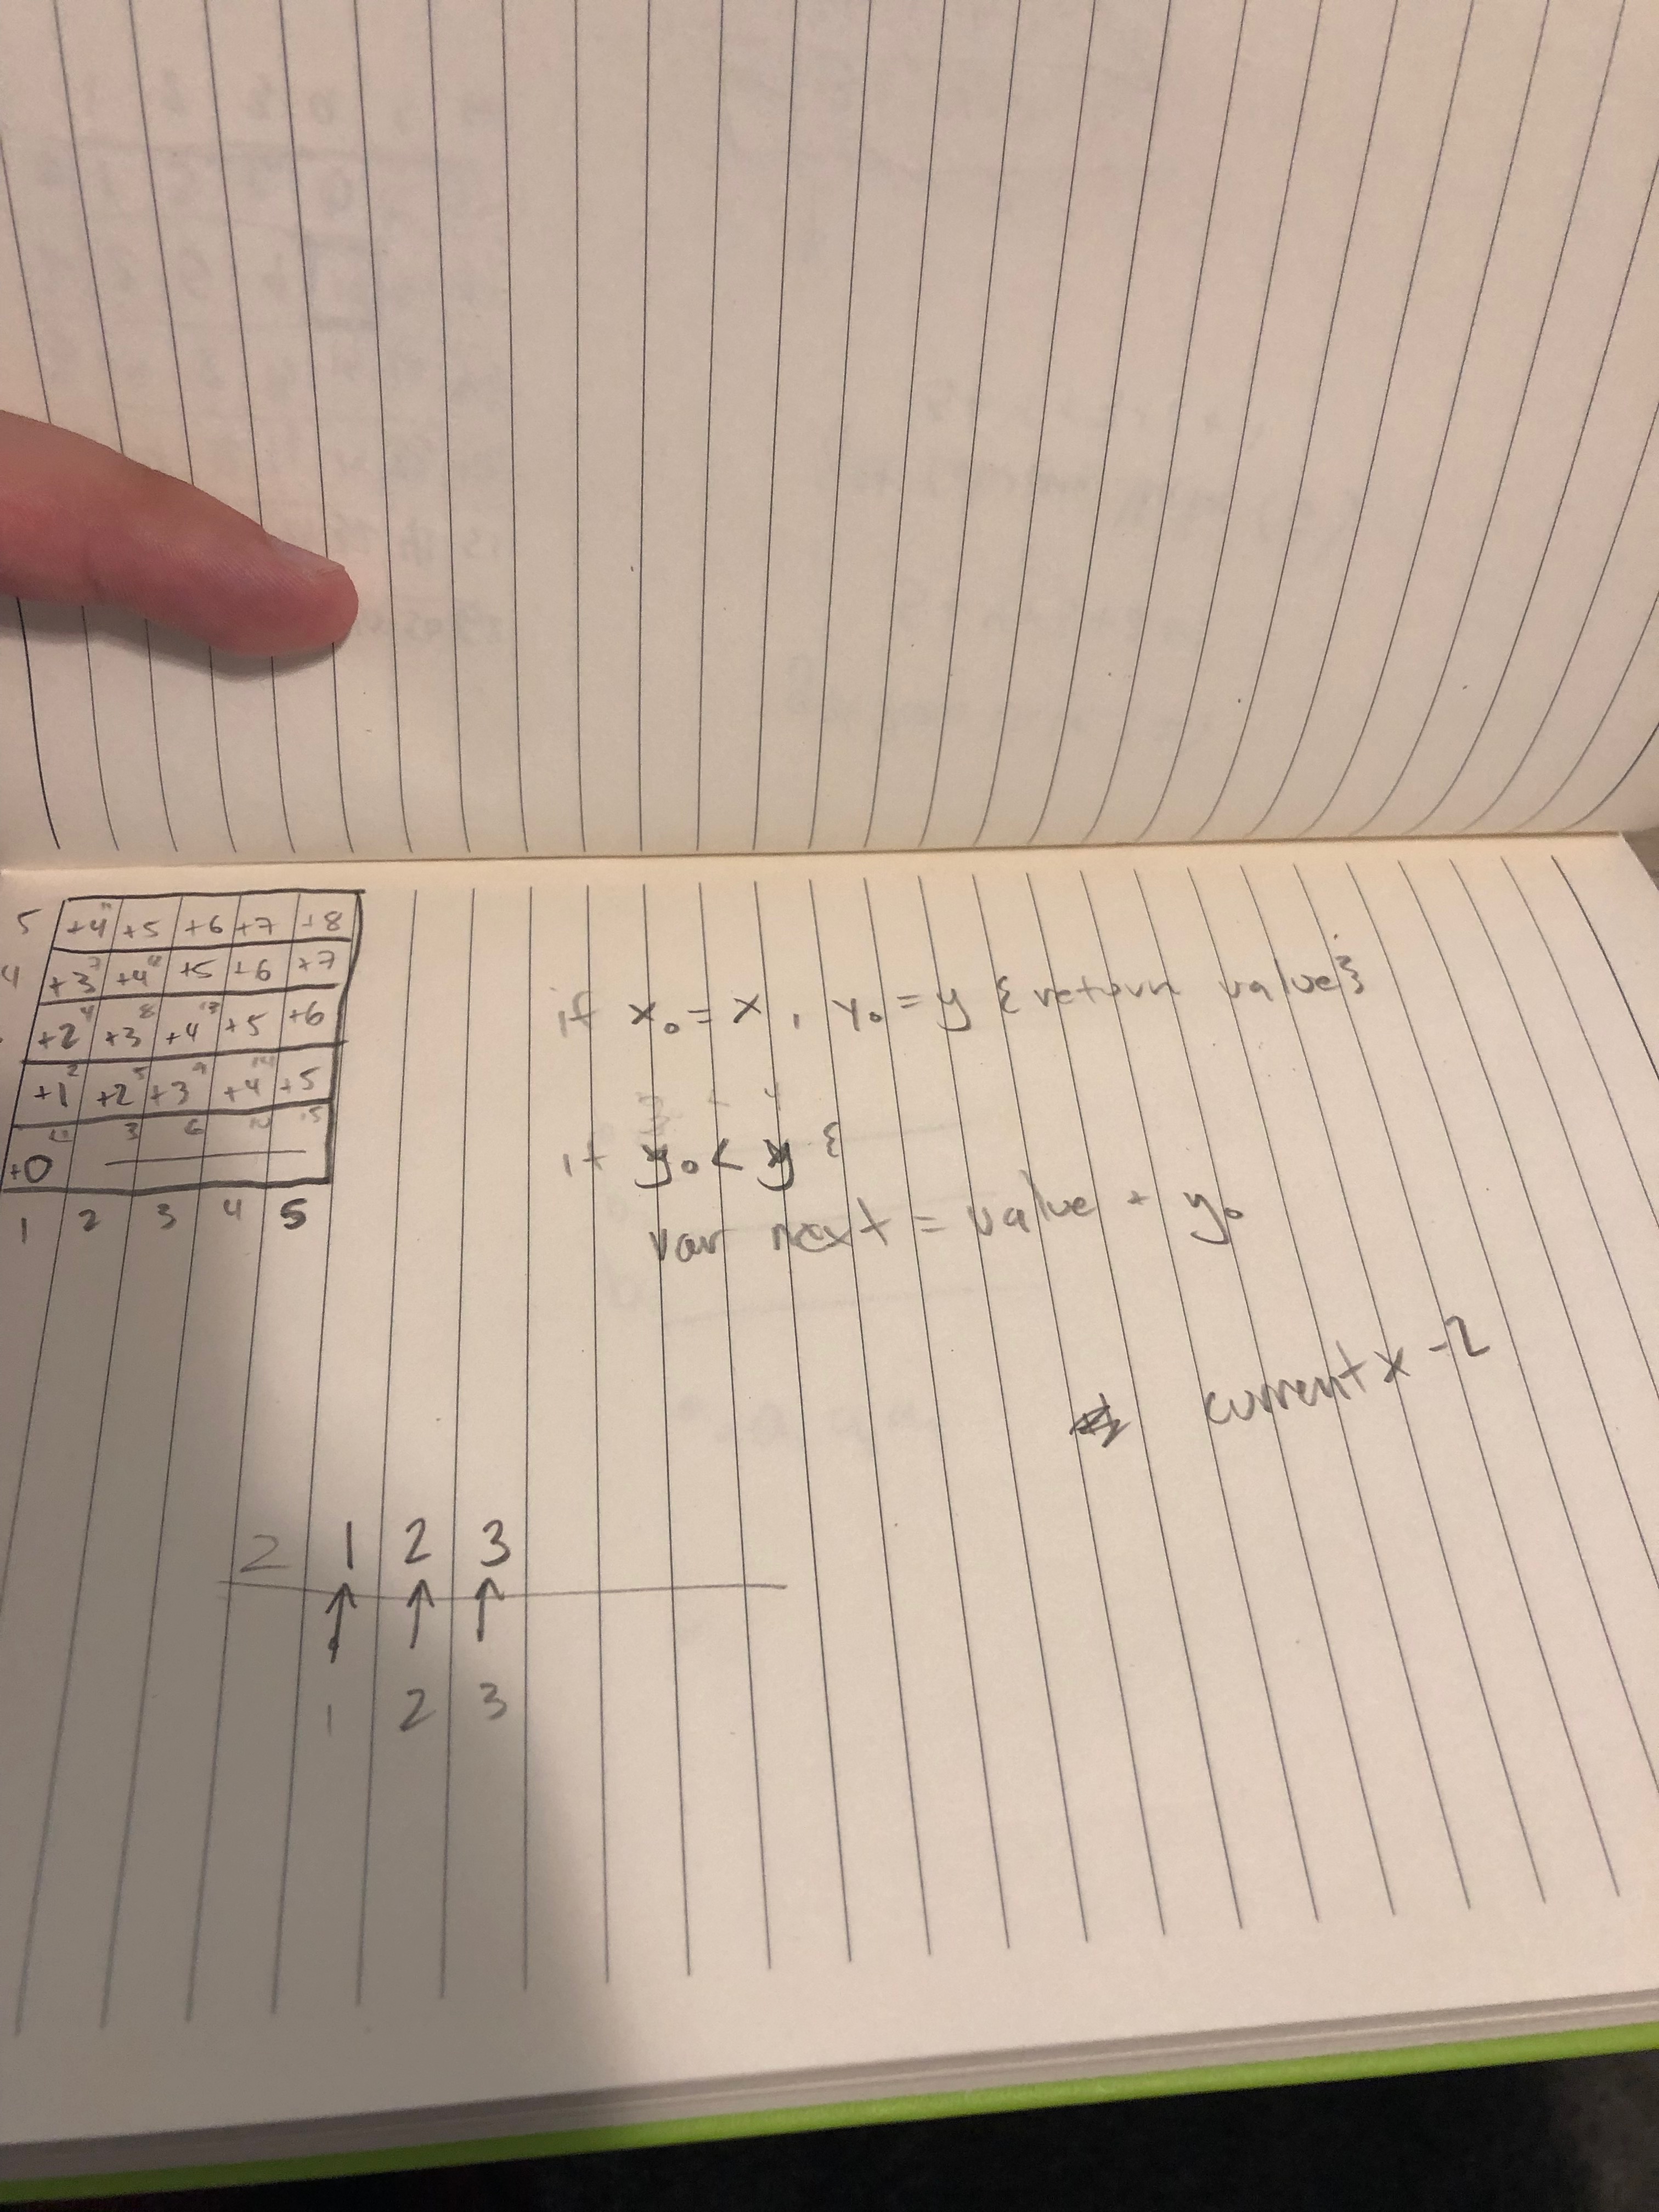 5 +4 11 +5 +6 +7 +8
4 +3 7 +4 +5 +6 +7
+2 4 +3 8 +4 13 +5 +6
+1 2 +2 5 +3 9 +4 14 +5
+0 3 6 10 15
1 2 3 4 5
if x₀ = x , y₀ = y { return value }
if y₀ < y {
var next = value + y₀
current x - 2
2 1 2 3
↑ ↑ ↑
1 2 3